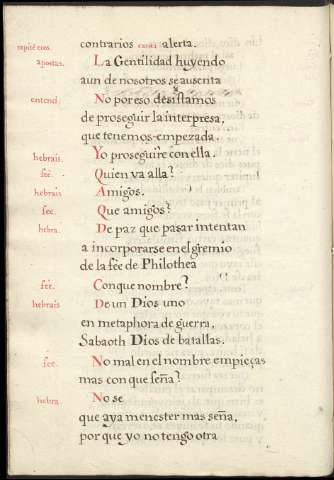 contrarios centi alerta.
repite eios.
apostas. La Gentilidad huyendo
aun de nosotros se ausenta
entenci. No por eso desistamos
de proseguir la interpresa,
que tenemos empezada.
hebrais. Yo proseguire con ella.
fee. Quien va alla?
hebrais Amigos.
fee. Que amigos?
hebra. De paz que pasar intentan
a incorporarse en el gremio
de la fée de Philothea
fée. Con que nombre?
hebrais De un Dios uno
en metaphora de guerra,
Sabaoth Dios de batallas.
fée. No mal en el nombre empieças
mas con que seña?
hebra. No se
que aya menester mas seña.
por que yo no tengo otra